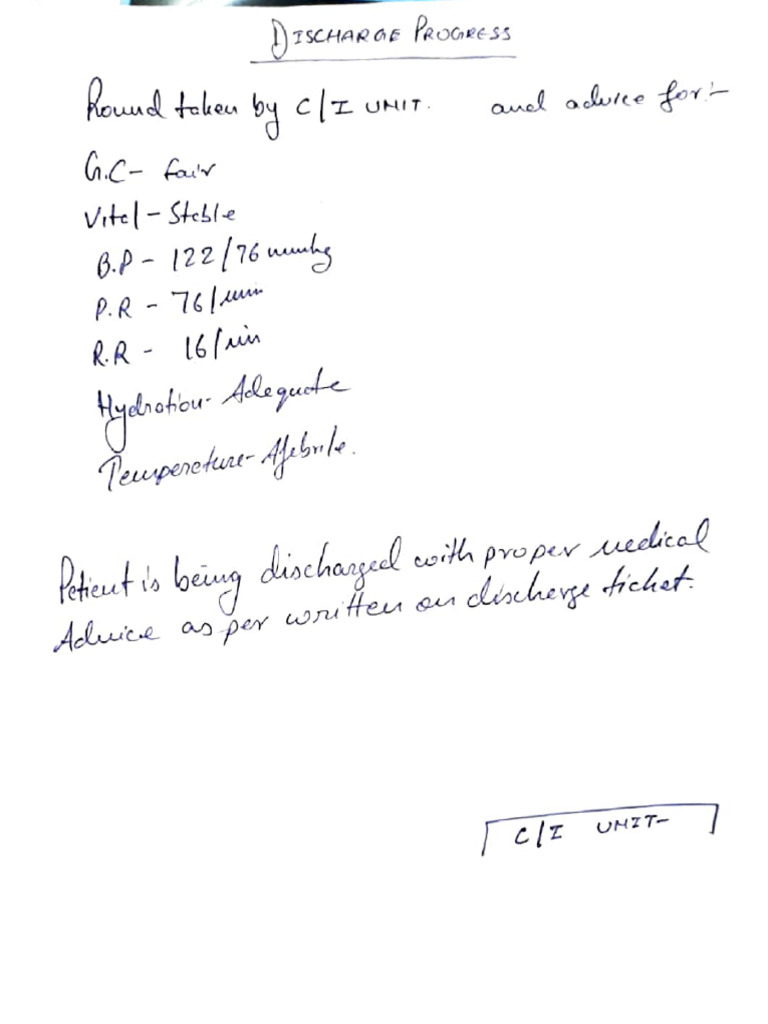 DISCHARGE PROGRESS
Round taken by C/I UNIT. and advice for:-
G.C- fair
Vital - Stable
B.P - 122/76 mmhg
P.R - 76/min
R.R - 16/min
Hydration- Adequate
Temperature- Afebrile.
Patient is being discharged with proper medical
Advice as per written on discharge ticket.
C/I UNIT-